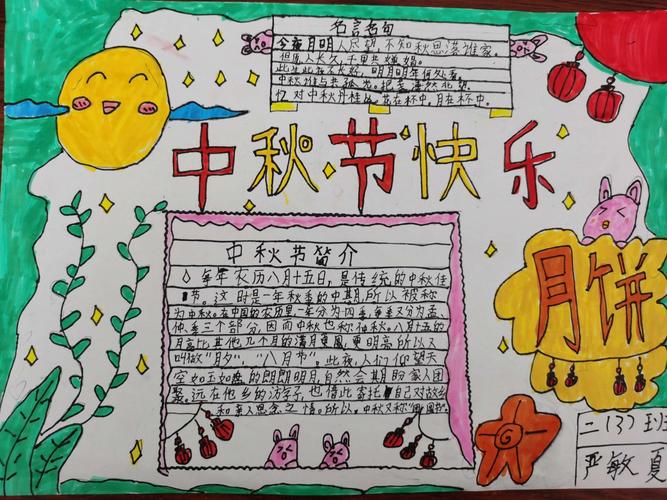 名言名句
今夜月明人尽望,不知秋思落谁家。
但愿人长久,千里共婵娟。
此生此夜不长好,明月明年何处看。
中秋谁与共孤光。把盏凄然北望。
忆对中秋丹桂丛。花在杯中,月在杯中。
中秋节快乐
中秋节简介
每年农历八月十五日,是传统的中秋佳
节。这时是一年秋季的中期,所以被称
为中秋。在中国的农历里,一年分为四季,每季又分为孟、
仲、季三个部分,因而中秋也称仲秋。八月十五的
月亮比其他几个月的满月更圆,更明亮,所以又
叫做“月夕”,“八月节”。此夜,人们仰望天
空如玉如盘的朗朗明月,自然会期盼家人团
聚。远在他乡的游学子,也借此寄托自己对故乡
和亲人思念之情。所以,中秋又称“团圆节”。
月饼
二(3)班
严敏夏